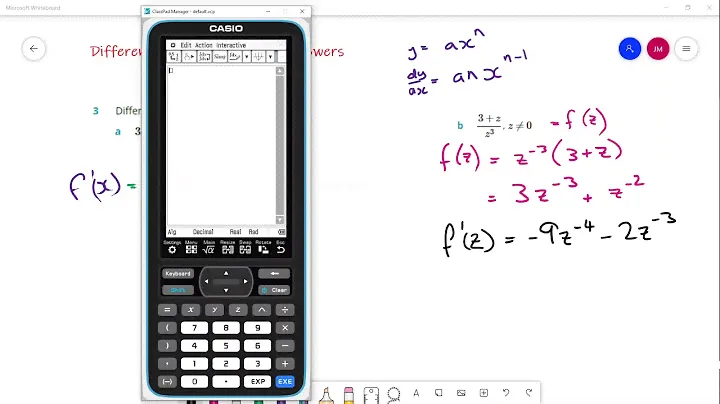 Microsoft Whiteboard
ClassPad Manager - default.vcp
CASIO
Edit Action Interactive
Simp
Alg Decimal Real Rad
Settings Menu Main Resize Swap Rotate Esc
Keyboard
Shift Clear
= x y z ^ ÷
( 7 8 9 ×
) 4 5 6 −
, 1 2 3 +
(−) 0 . EXP EXE
Differ
wers
JM
y = ax^n
dy/ax = anx^{n-1}
3 Differ
a 3
f'(x) =
b (3+z)/z^3, z≠0 = f(z)
f(z) = z^{-3}(3+z)
= 3z^{-3} + z^{-2}
f'(z) = -9z^{-4} - 2z^{-3}